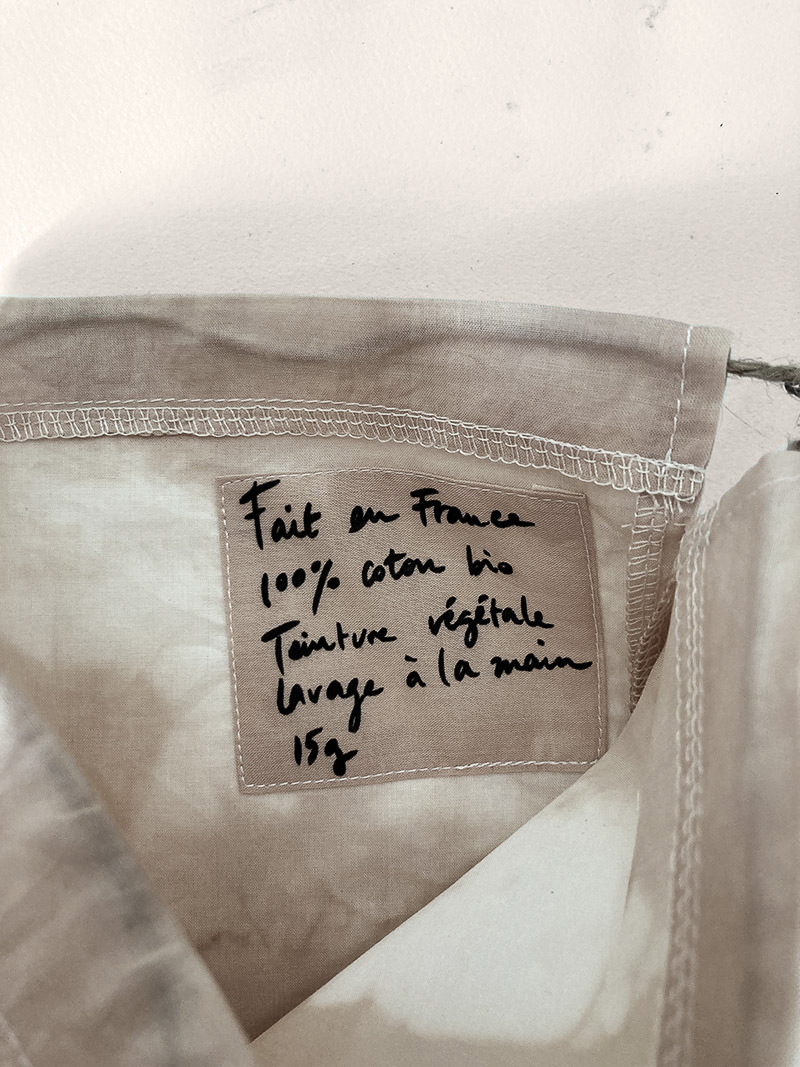 Fait en France
100% coton bio
Teinture végétale
lavage à la main
15g